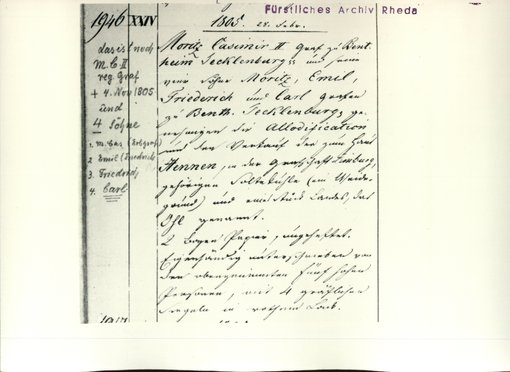 Fürstliches Archiv Rheda
1946 XXIV 1805. 28. Febr.
das ist noch
M. C. II
reg. Graf
+ 4. Nov 1805
und
4 Söhne
1. M. Cas (Erbgraf)
2. Emil (Friedrich)
3. Friedrich
4. Carl
Moritz Casimir II Graf zu Bent-
heim Tecklenburg und seine
vier Söhne Moritz, Emil,
Friederich und Carl Grafen
zu Benth. Tecklenburg, ge-
nehmigen die Allodification
und den Verkauf der zum Haus
Hennen, in der Grafschaft Limburg,
gehörigen (ein Weide-
grund) und ein Stück Landes, das
genannt.
2 Bogen Papier, ungeheftet.
Eigenhändig unterschrieben von
den obengenannten fünf hohen
Personen, mit 4 gräflichen
Siegeln in rothem Lack.